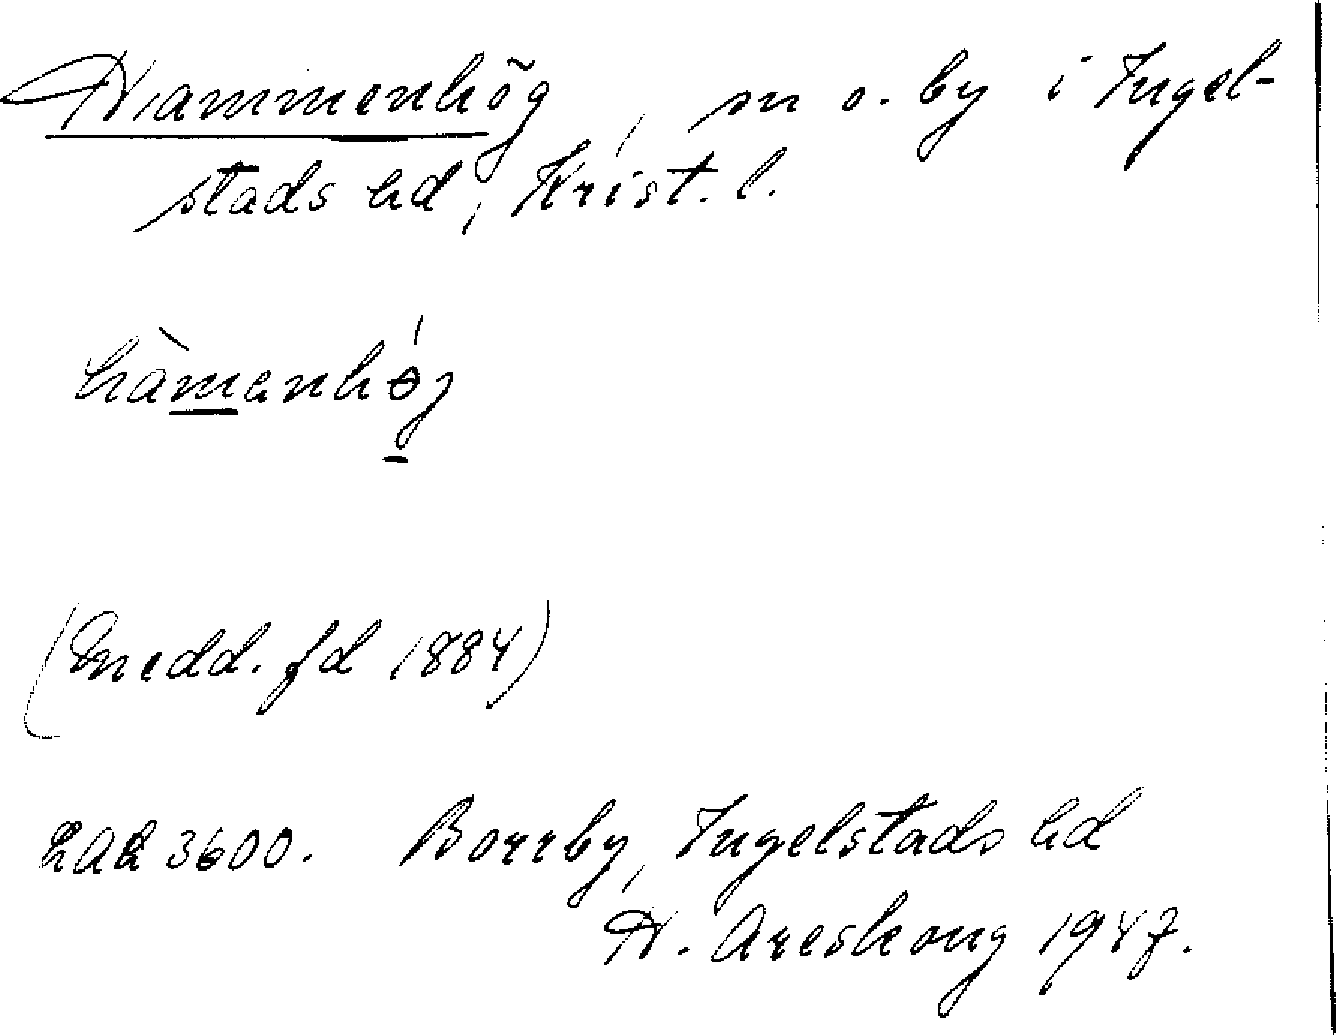 Hammenhög, sn o. by i Ingel-
stads hd, Krist. l.
hàmenhǿj
(Medd. fd 1884)
LAL 3600. Borrby, Ingelstads hd
H. Areskoug 1947.